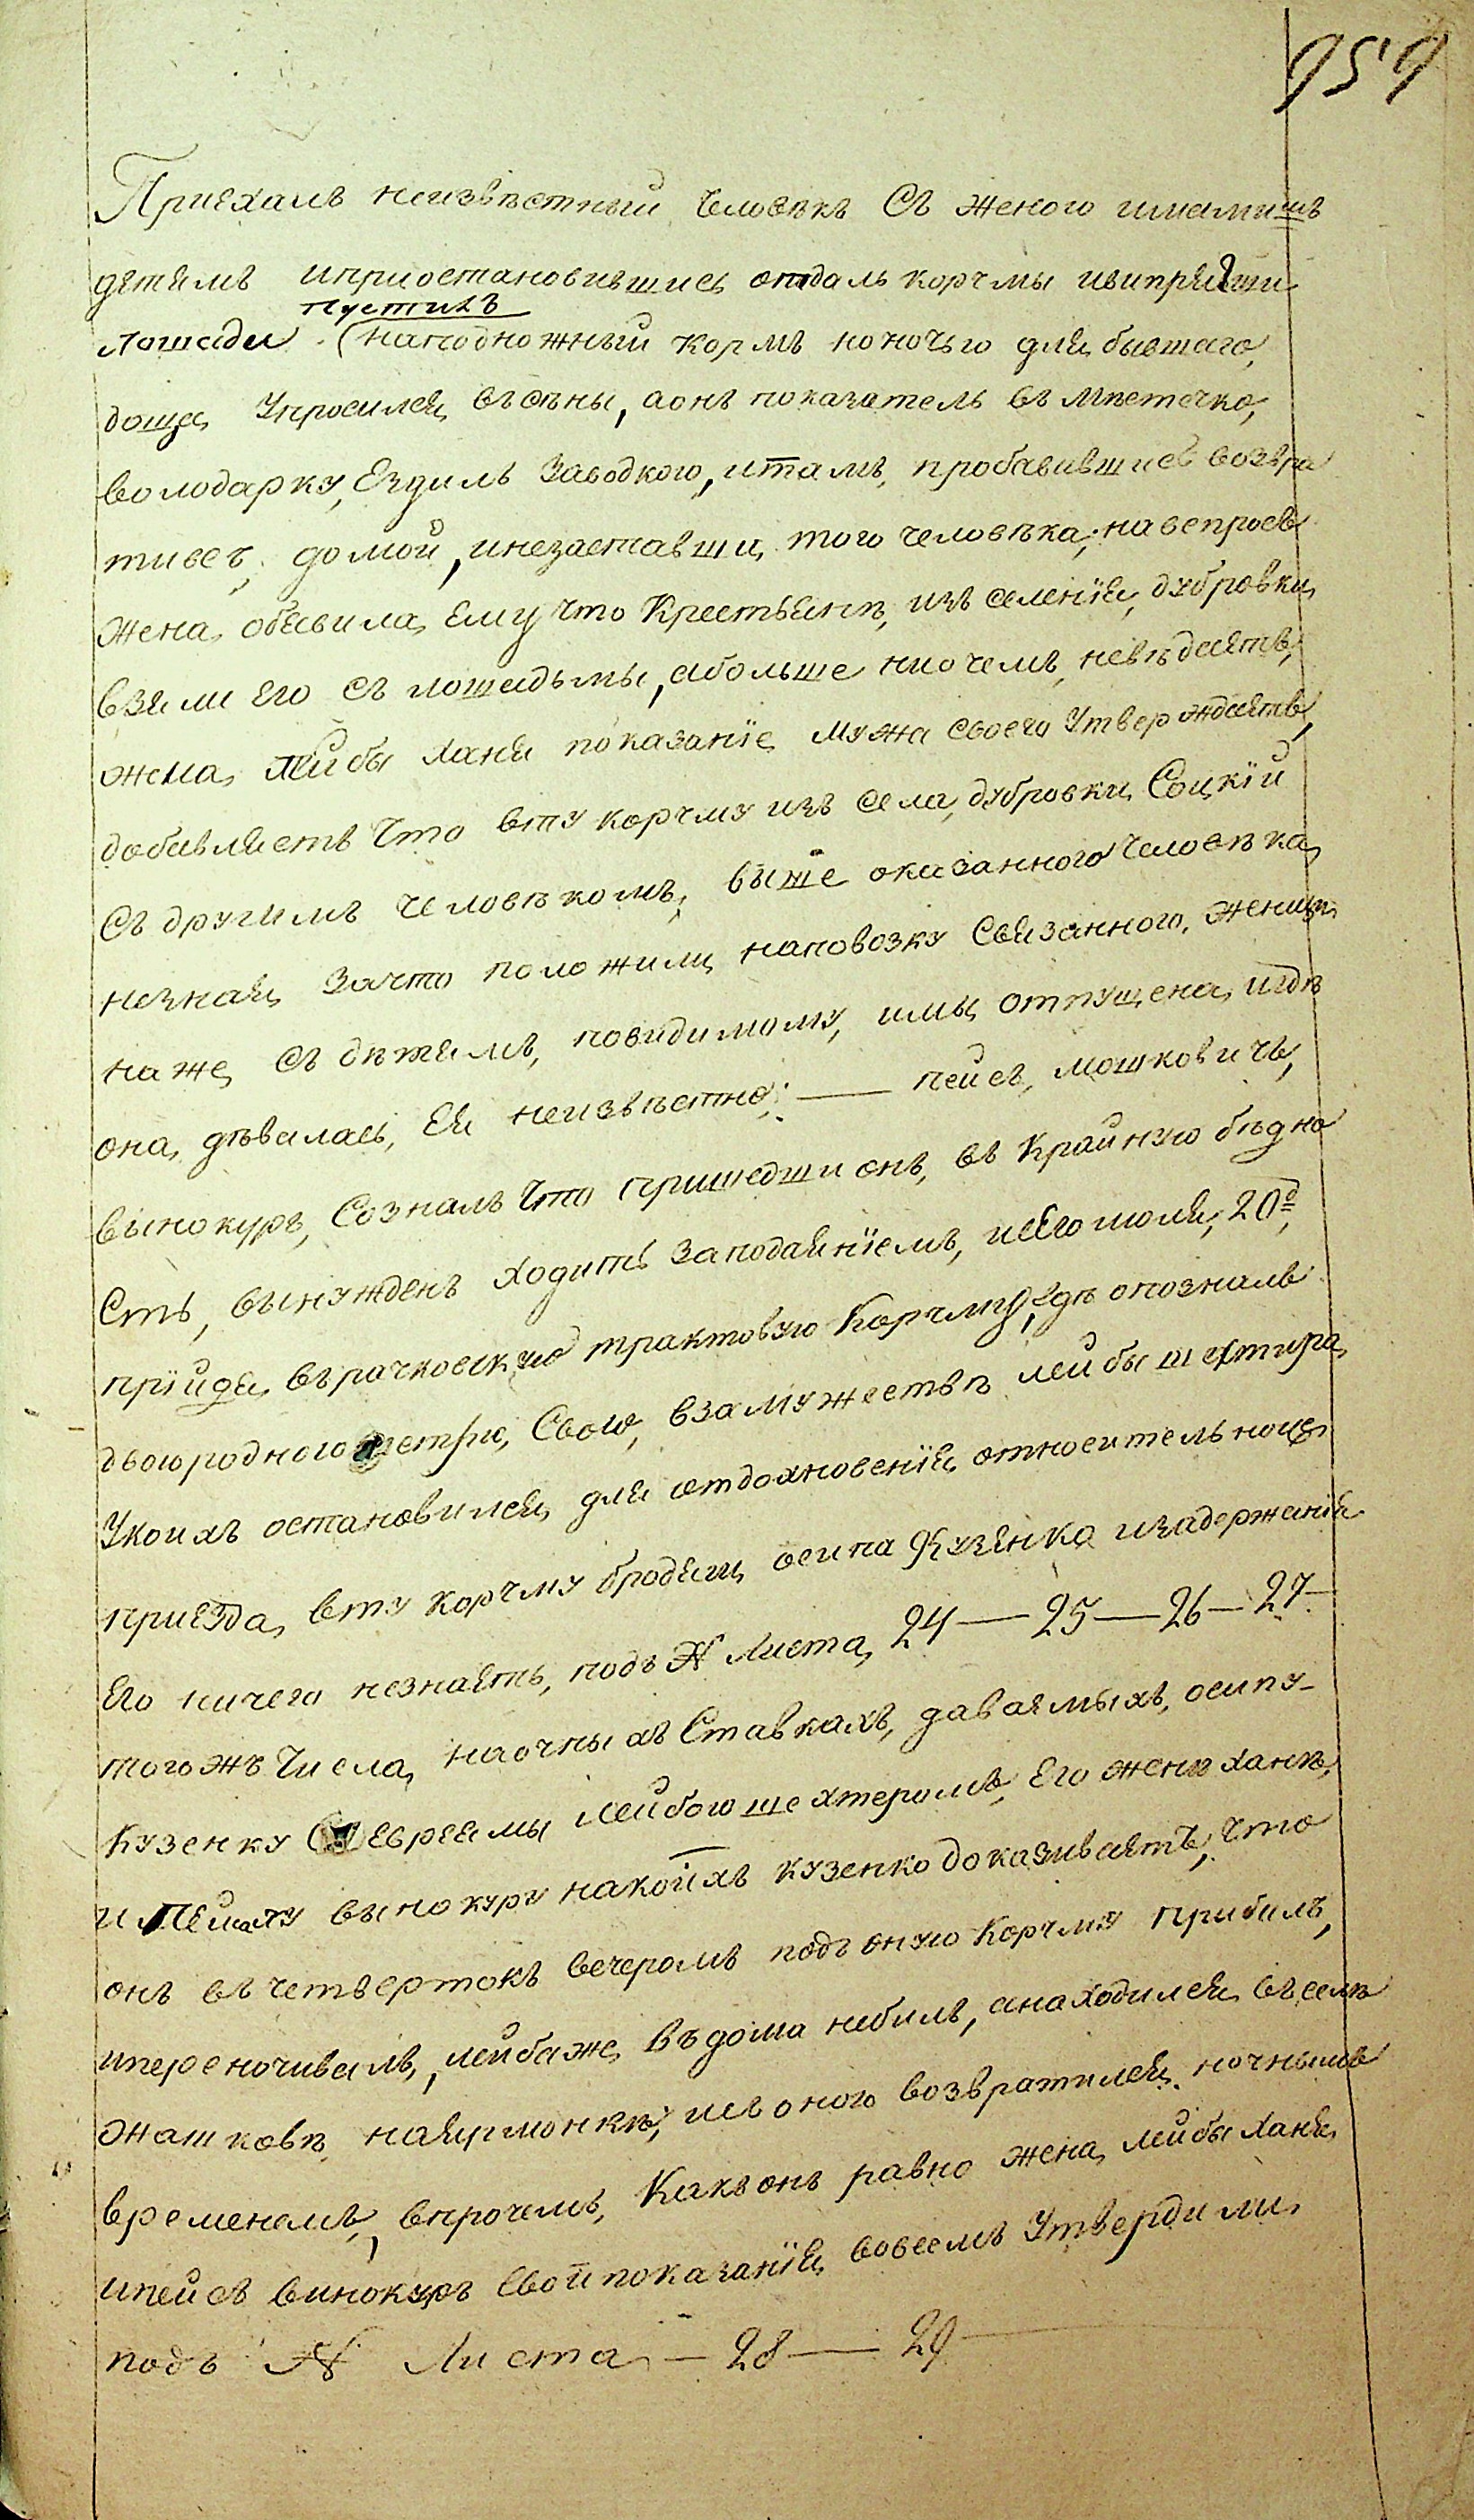 959
Приехалъ неизвѣстный человѣкъ Съ женою ималимъ
детямъ иприостановившись отдаль корчмы ивипрягши
пустилъ
лошади наподножный кормъ ноночью для бывшаго
дожща Упросился въ сѣны, аонъ показатель въ мѣстечко
володарку, Ездилъ заводкою, итамъ, пробавившись возвра
тивсь, домой, инезаставши, того человѣка, навспросъ
жена обявила, Ему что Крестьянѣ, изъ селенія, дубровки
взяли Его съ лошадьмы, абольше ниочемъ, невѣдаетъ,
жена, Лейбы Ханя показаніе мужа своего Утверждаетъ,
добавляетъ Что вту корчму изъ села, дубровки, Соцкій
Съ другимъ человѣкомъ, выше оказанного Человѣка,
незная, зачто положили, наповозку Связанного, женщи
на же, съ дѣтямъ, повидимому, имы, отпущена, игдѣ
она, дѣвалась, Ея неизвѣстно; — пейсъ, мошковичъ,
вынокуръ, Созналъ Что пришедши онъ, въ Крайную бѣдно
Сть, вынужденъ ходить заподаяніемъ, исего июля, 20д,
прїйдя, върачковскую трактовую Корчму, гдѣ опозналъ
двоюродного сестрю, Свою, взамужествѣ лейбы шехтира,
Укоихъ остановился, для отдохновенія, относительноже,
приезда, вту корчму бродяги, осипа Кузенка изадержанія
Его ничего незнаетъ, подъ № Листа, 24 — 25 — 26 — 27 —
тогожъ Числа, наочныхъ Ставкахъ, даваемыхъ, осипу-
Кузенку Съ евреямы лейбою шехтеромъ, Его женѣ ханѣ,
и Пейсаху вынокуру накоихъ кузенко доказиваетъ, Что
онъ въ четвертокъ вечеромъ подъ оную Корчму прибилъ,
ипереночивалъ, лейбаже, въдома небилъ, анаходился, въселѣ
жашковѣ, наярмонкѣ, исъ оного возвратился, ночнымъ
временемъ, впрочемъ, Какъ онъ равно жена, лейбы Ханя,
ипейсъ винокуръ Свои показанія, вовсемъ Утвердили,
подъ № Листа — 28 — 29